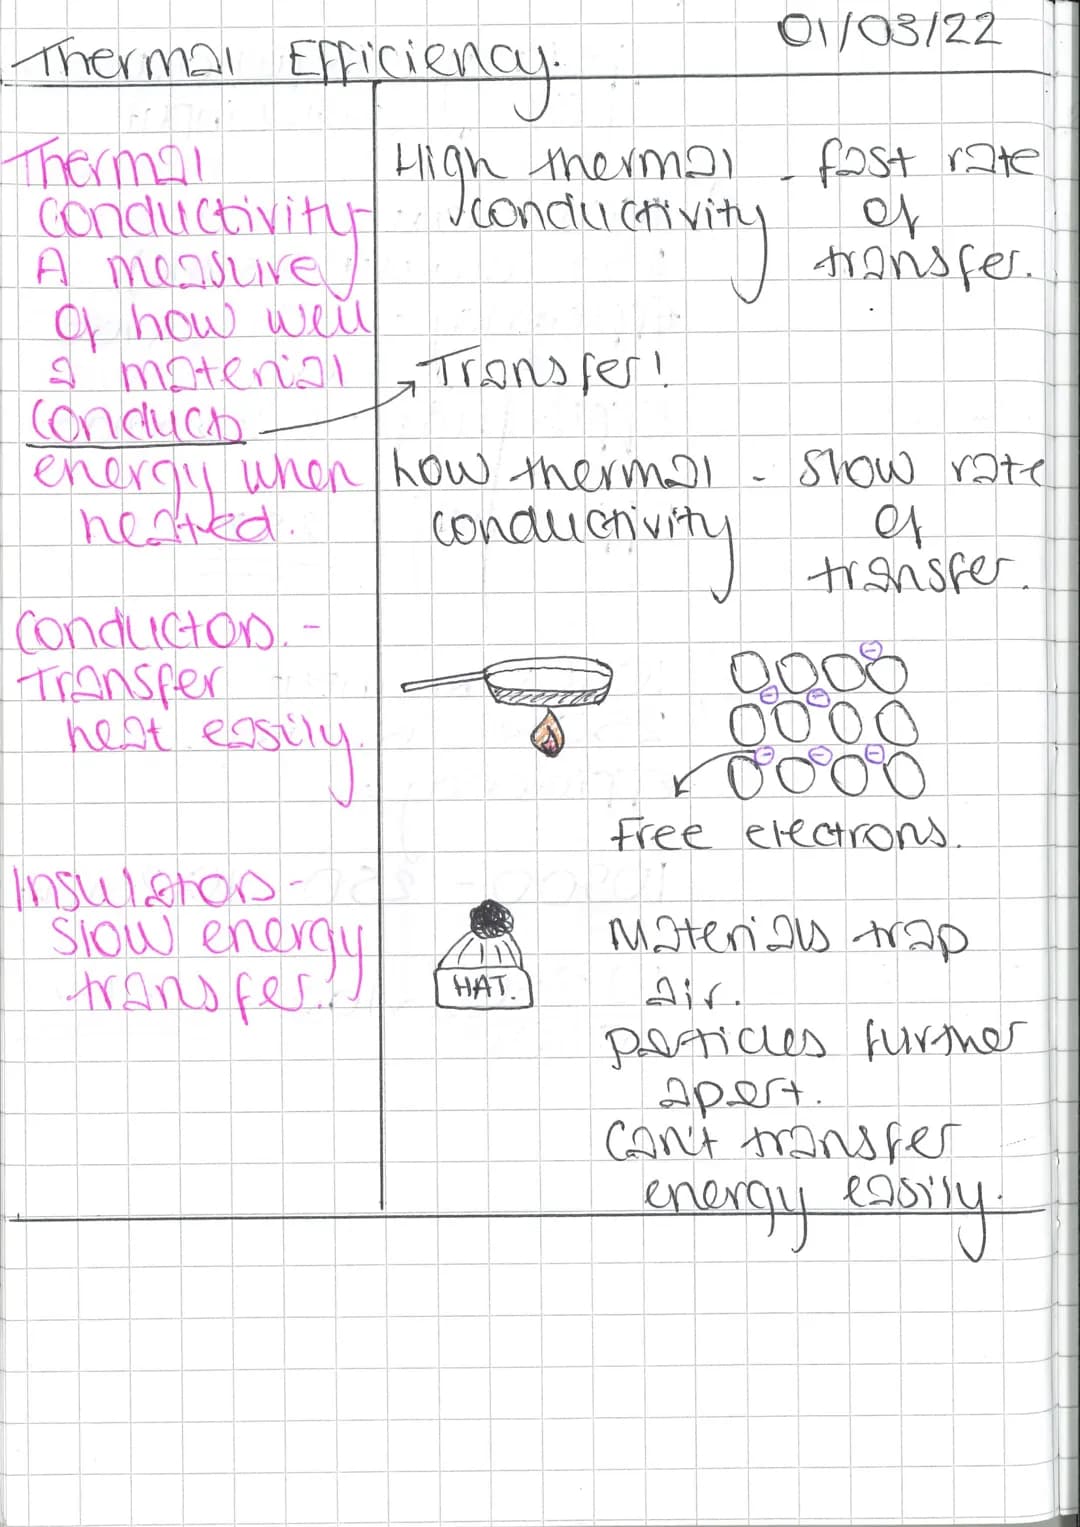 01/03/22
Thermal Efficiency.
Thermal
conductivity-
A measure
of how well
a material
conducts
energy when
heated.
Conductors. -
Transfer
heat easily.
Insulators -
Slow energy
transfer.
High thermal - fast rate
conductivity of
transfer.
Transfer!
Low thermal - Slow rate
conductivity of
transfer.
Free electrons.
HAT.
Materials trap
air.
particles further
apart.
Can't transfer
energy easily.